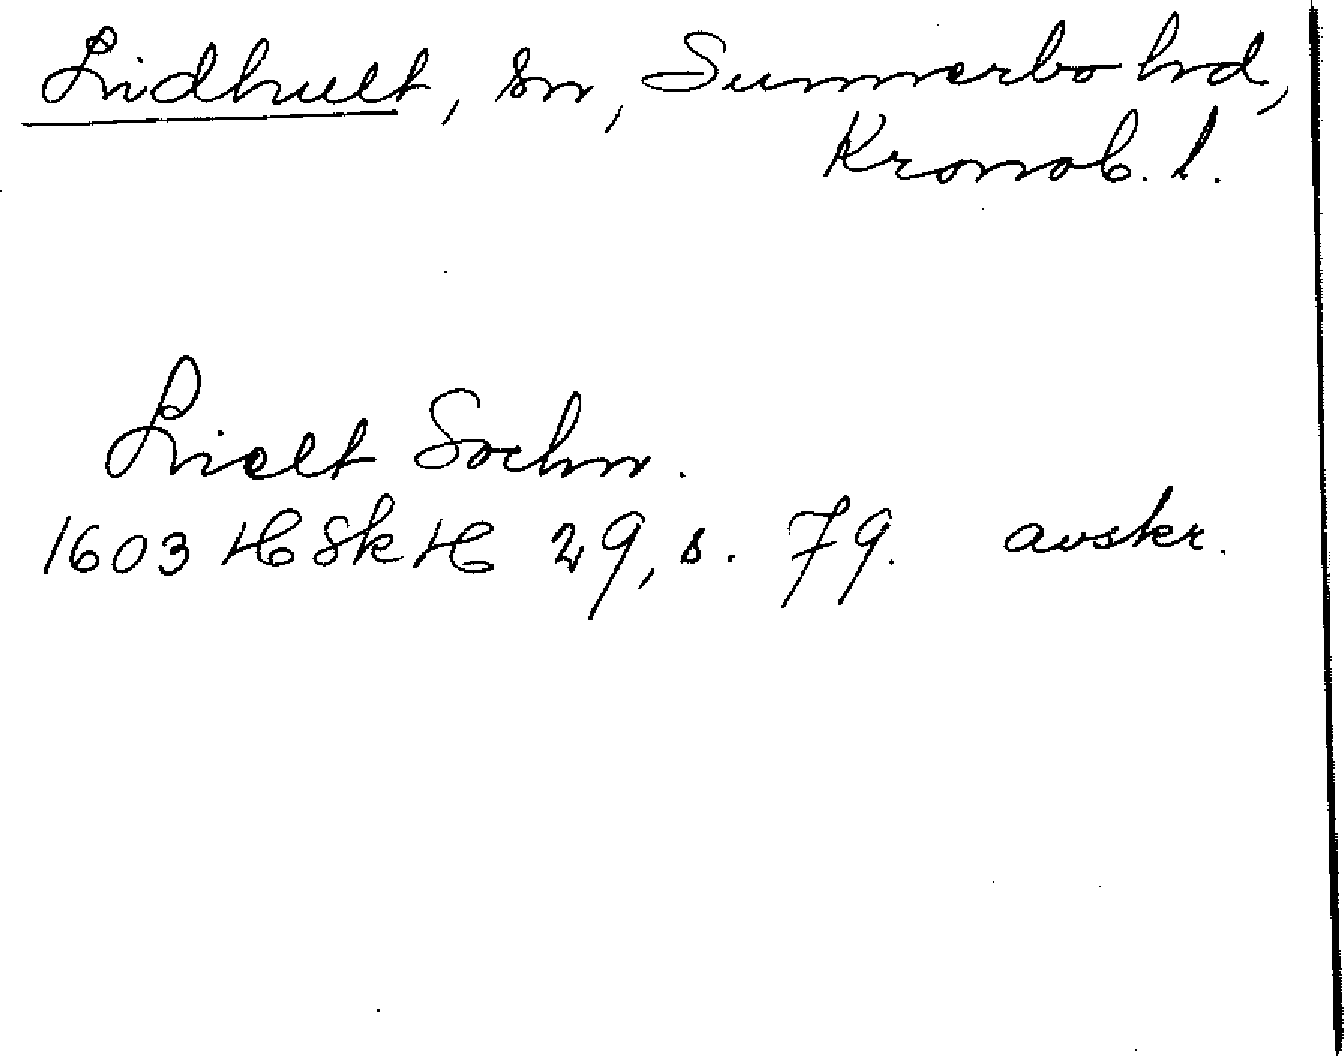 Lidhult, sn, Sunnerbo hd,
Kronob. l.
Lielt Sochn.
1603 HSkH 29, s. 79. avskr.